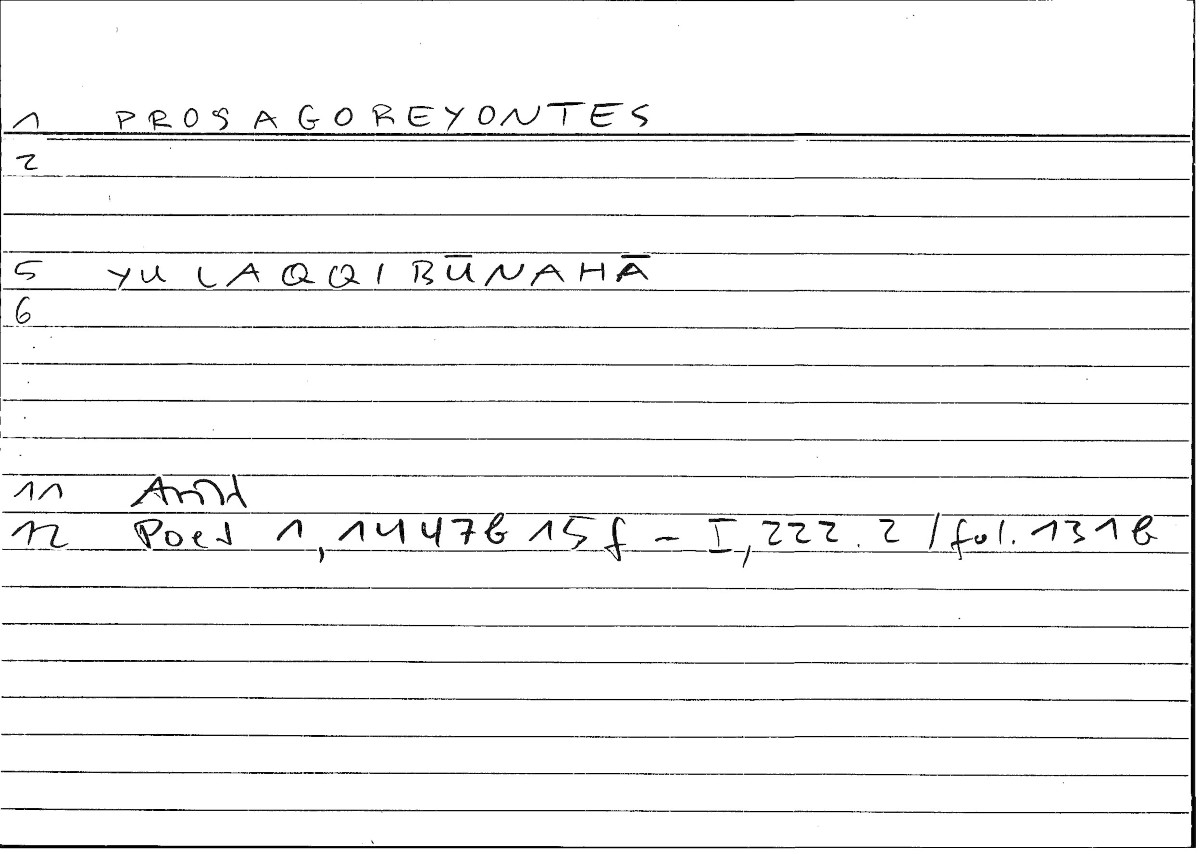 1 PROSAGOREYONTES
2
5 YULAQQIBŪNAHĀ
6
11 Arist
12 Poet 1, 1447b 15 f - I, 222.2 / fol. 131b